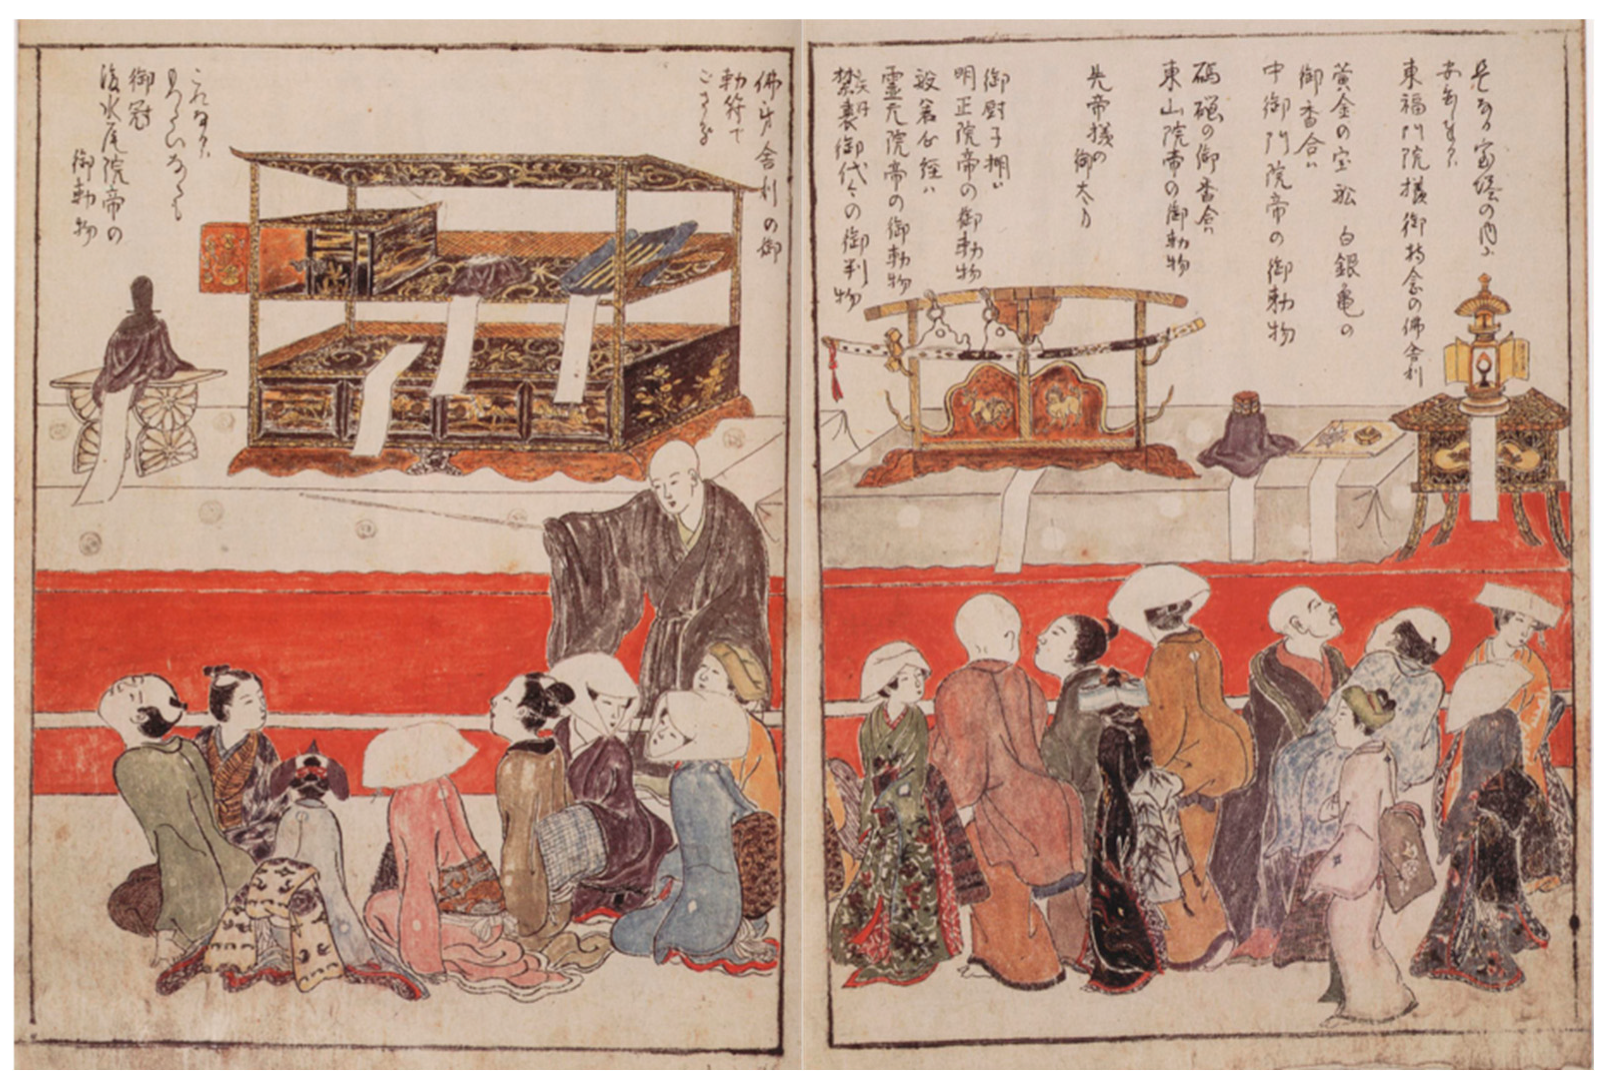 是なる宝塔の内に
安置奉るは
東福門院様御持念の佛舎利
黄金の宝船 白銀亀の
御香合は
中御門院帝の御勅物
の御香合は
東山院帝の御勅物
先帝様の
御太刀
御厨子棚は
明正院帝の御勅物
般若心経は
霊元院帝の御勅物
禁裏御代々の御判物
佛牙舎利の御
勅符で
これなるは
御冠
後水尾院帝の
御勅物